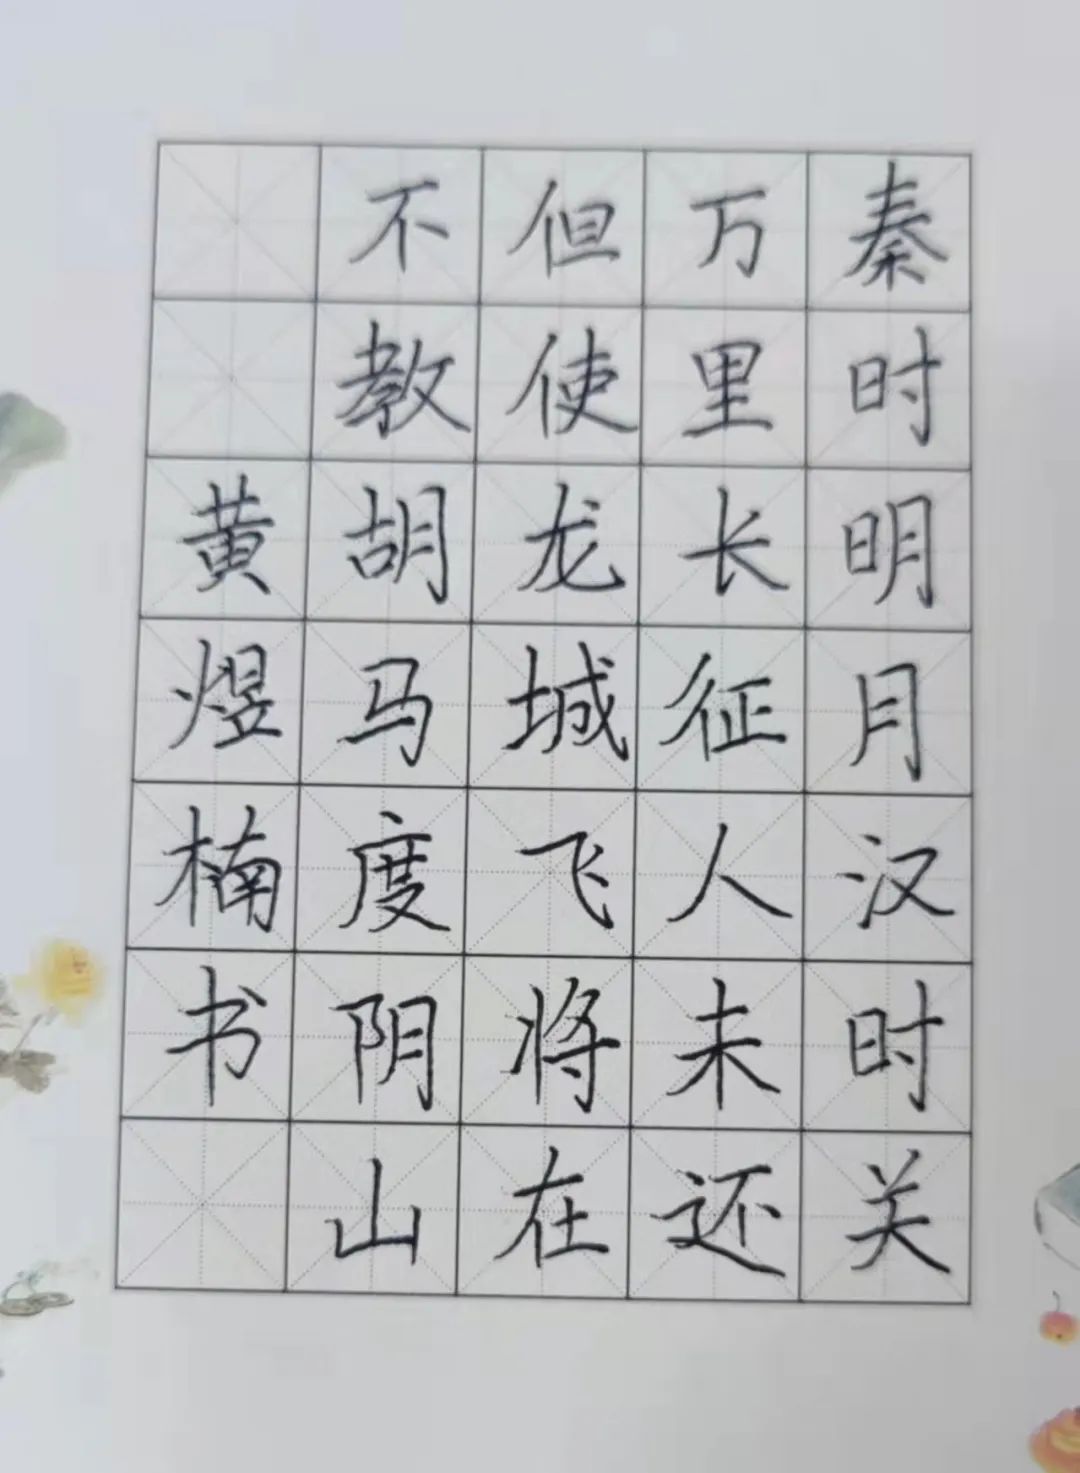 秦时明月汉时关
万里长征人未还
但使龙城飞将在
不教胡马度阴山
黄煜楠书